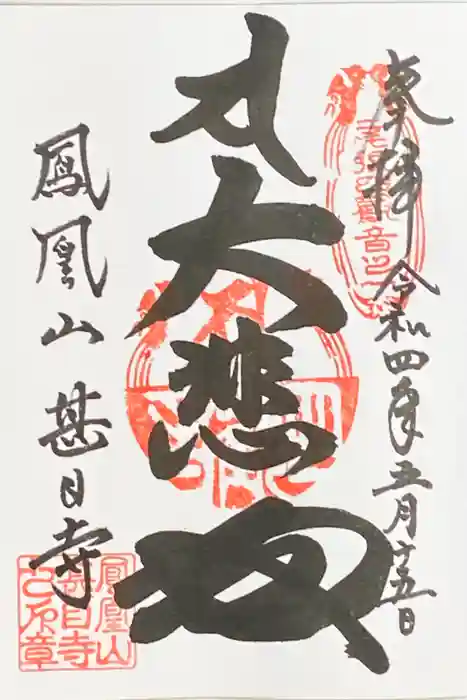 奉拝 令和四年五月十五日
尾張四観音
大悲殿
鳳凰山 甚目寺
鳳凰山
甚目寺